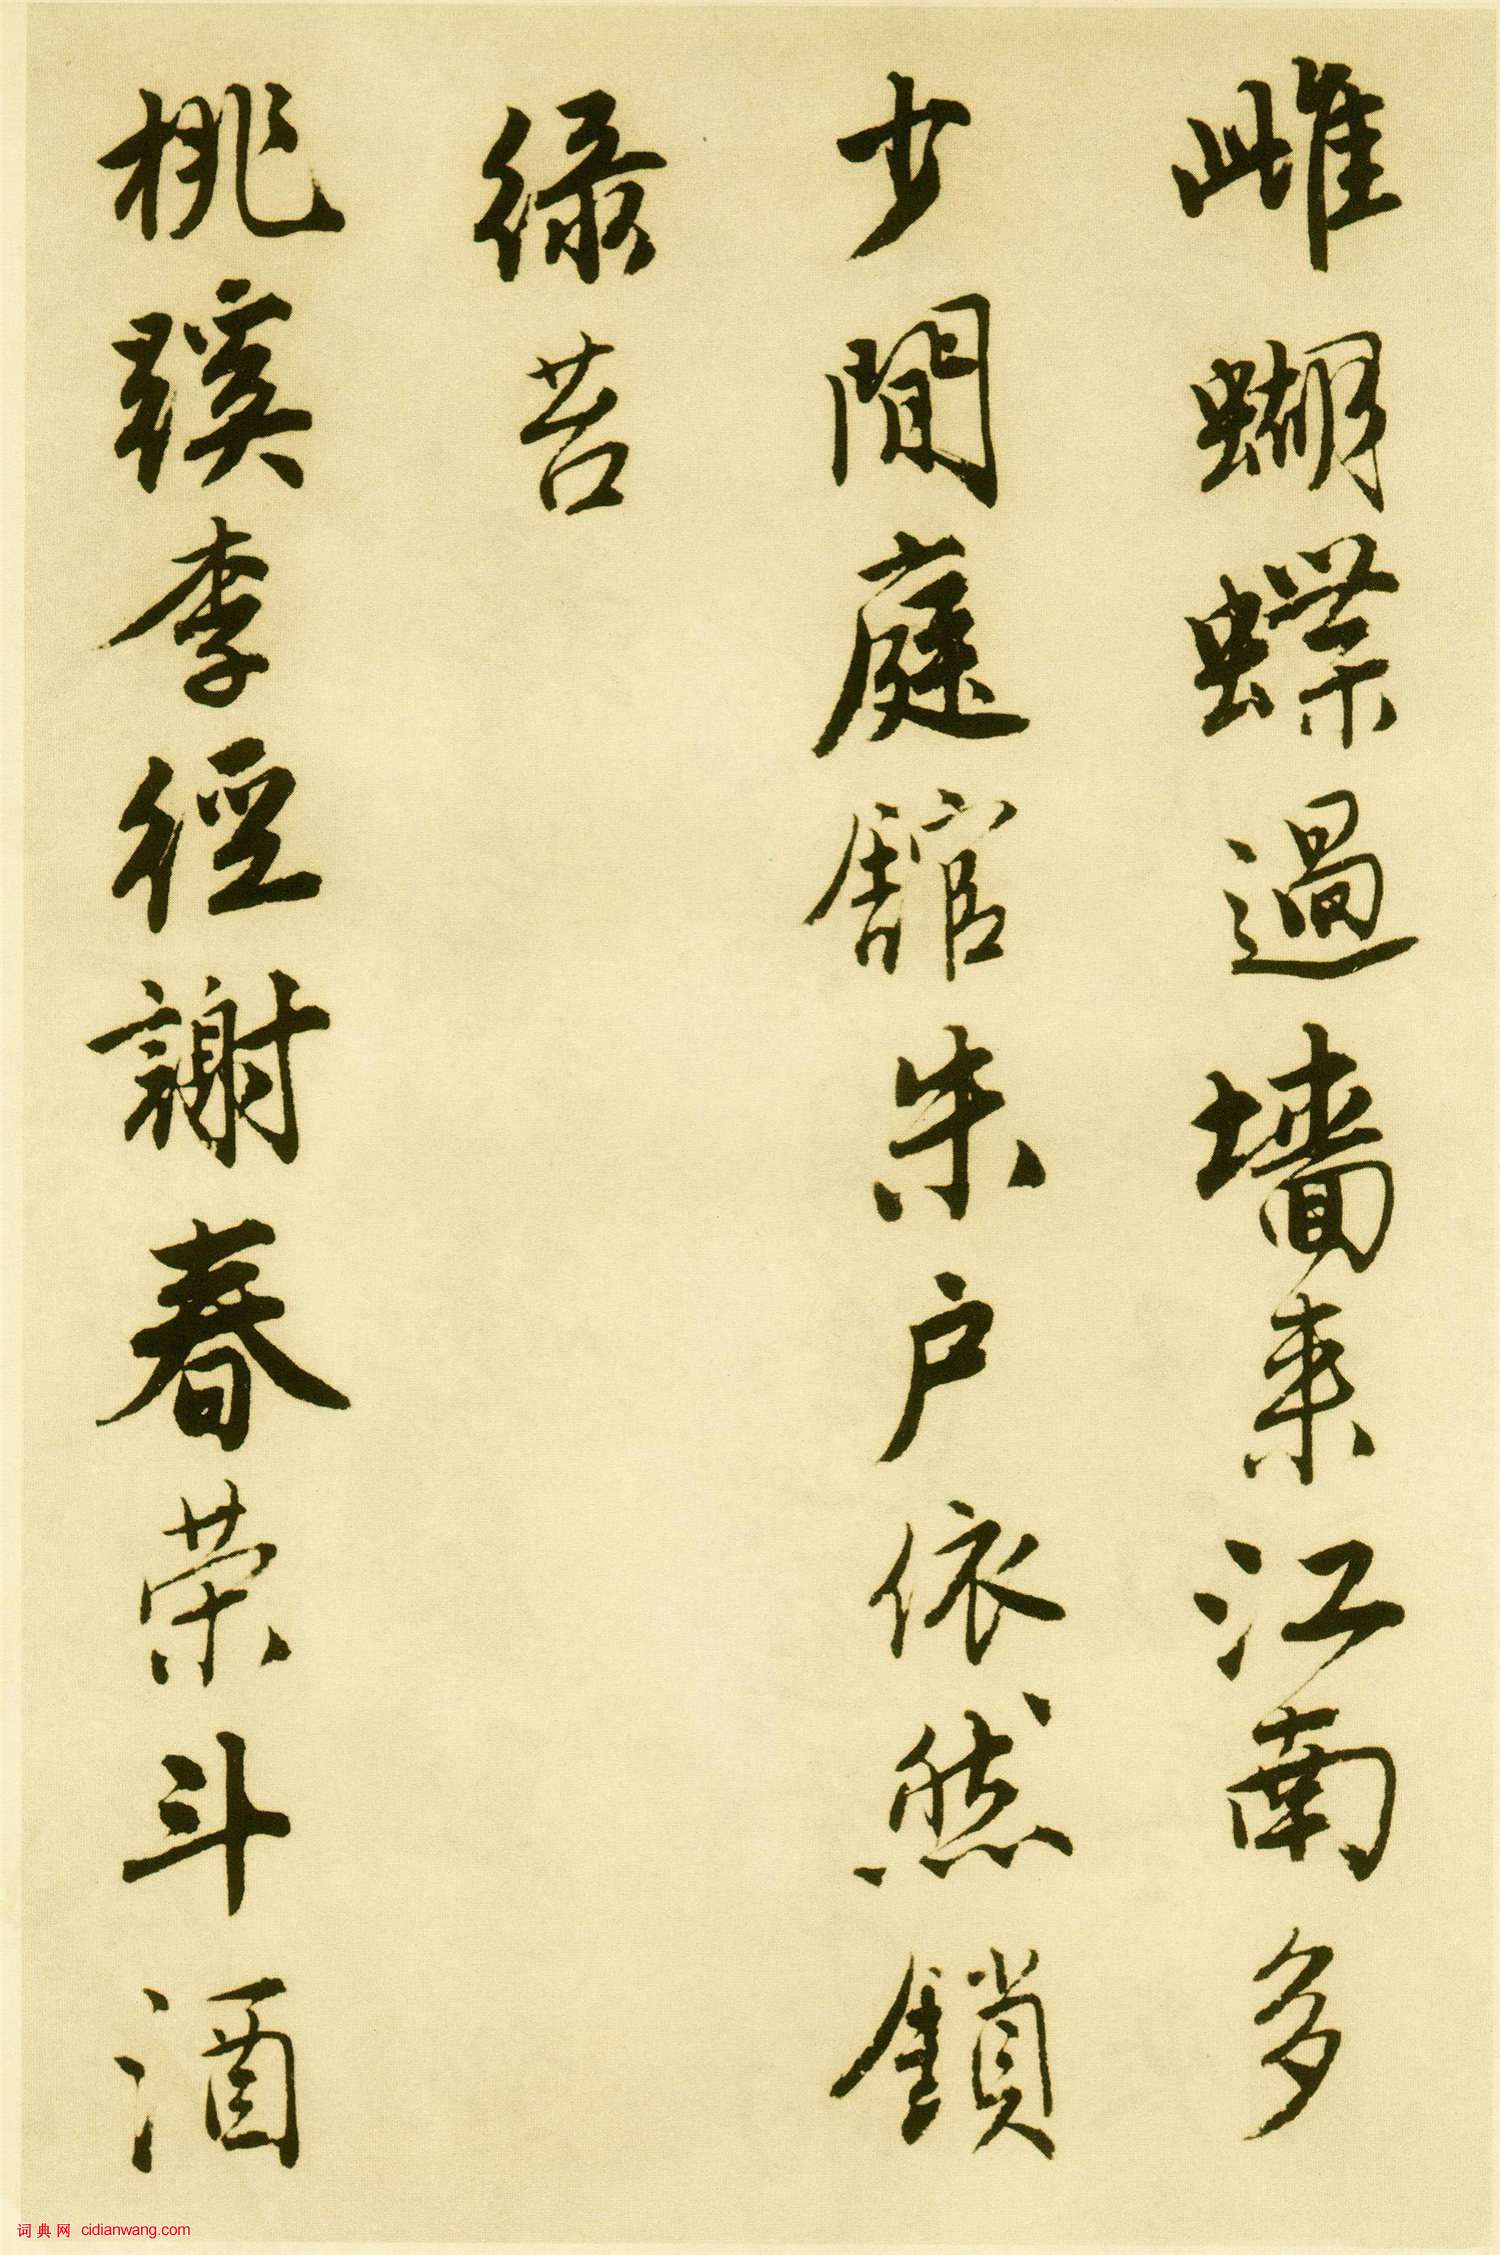 雌蝴蝶過墙来江南多
少閒庭舘朱户依然鎖
緑苔
桃蹊李徑謝春荣斗酒
词典网 cidianwang.com